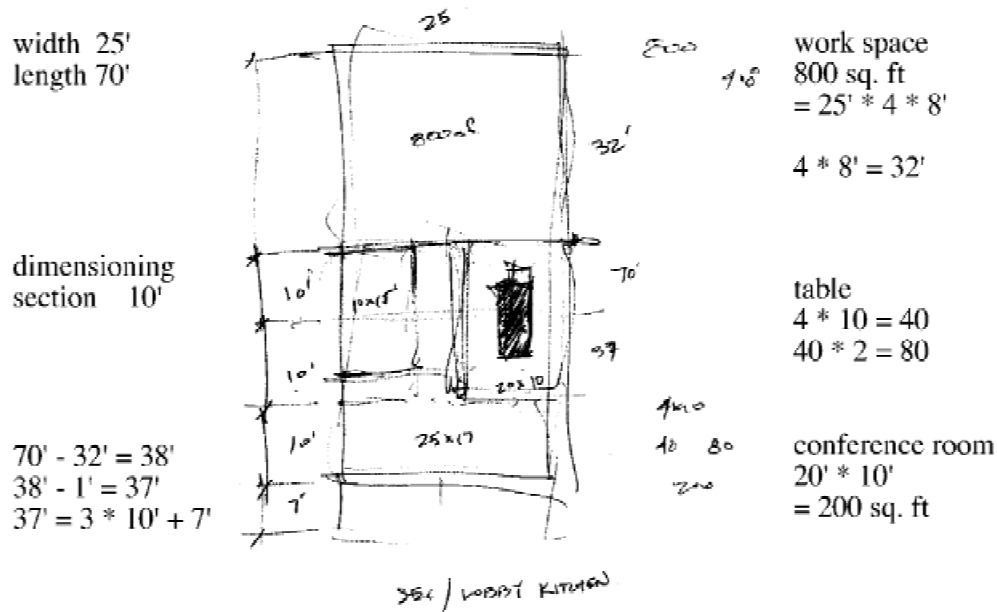 width 25'
length 70'
dimensioning
section 10'
70' - 32' = 38'
38' - 1' = 37'
37' = 3 * 10' + 7'
25
32'
10'
10'
10'
7'
70'
37
20x10
25x17
LOBBY KITCHEN
800
4·8
40 80
200
work space
800 sq. ft
= 25' * 4 * 8'
4 * 8' = 32'
table
4 * 10 = 40
40 * 2 = 80
conference room
20' * 10'
= 200 sq. ft